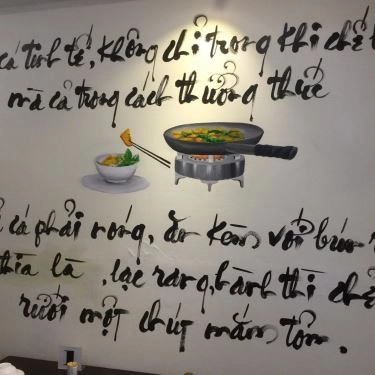 cá tinh tế, không chỉ trong khi chế
mà cả trong cách thưởng thức
cá phải nóng, ăn kèm với bún
thìa là, lạc rang, bánh thì chế
rưới một chút mắm tôm.